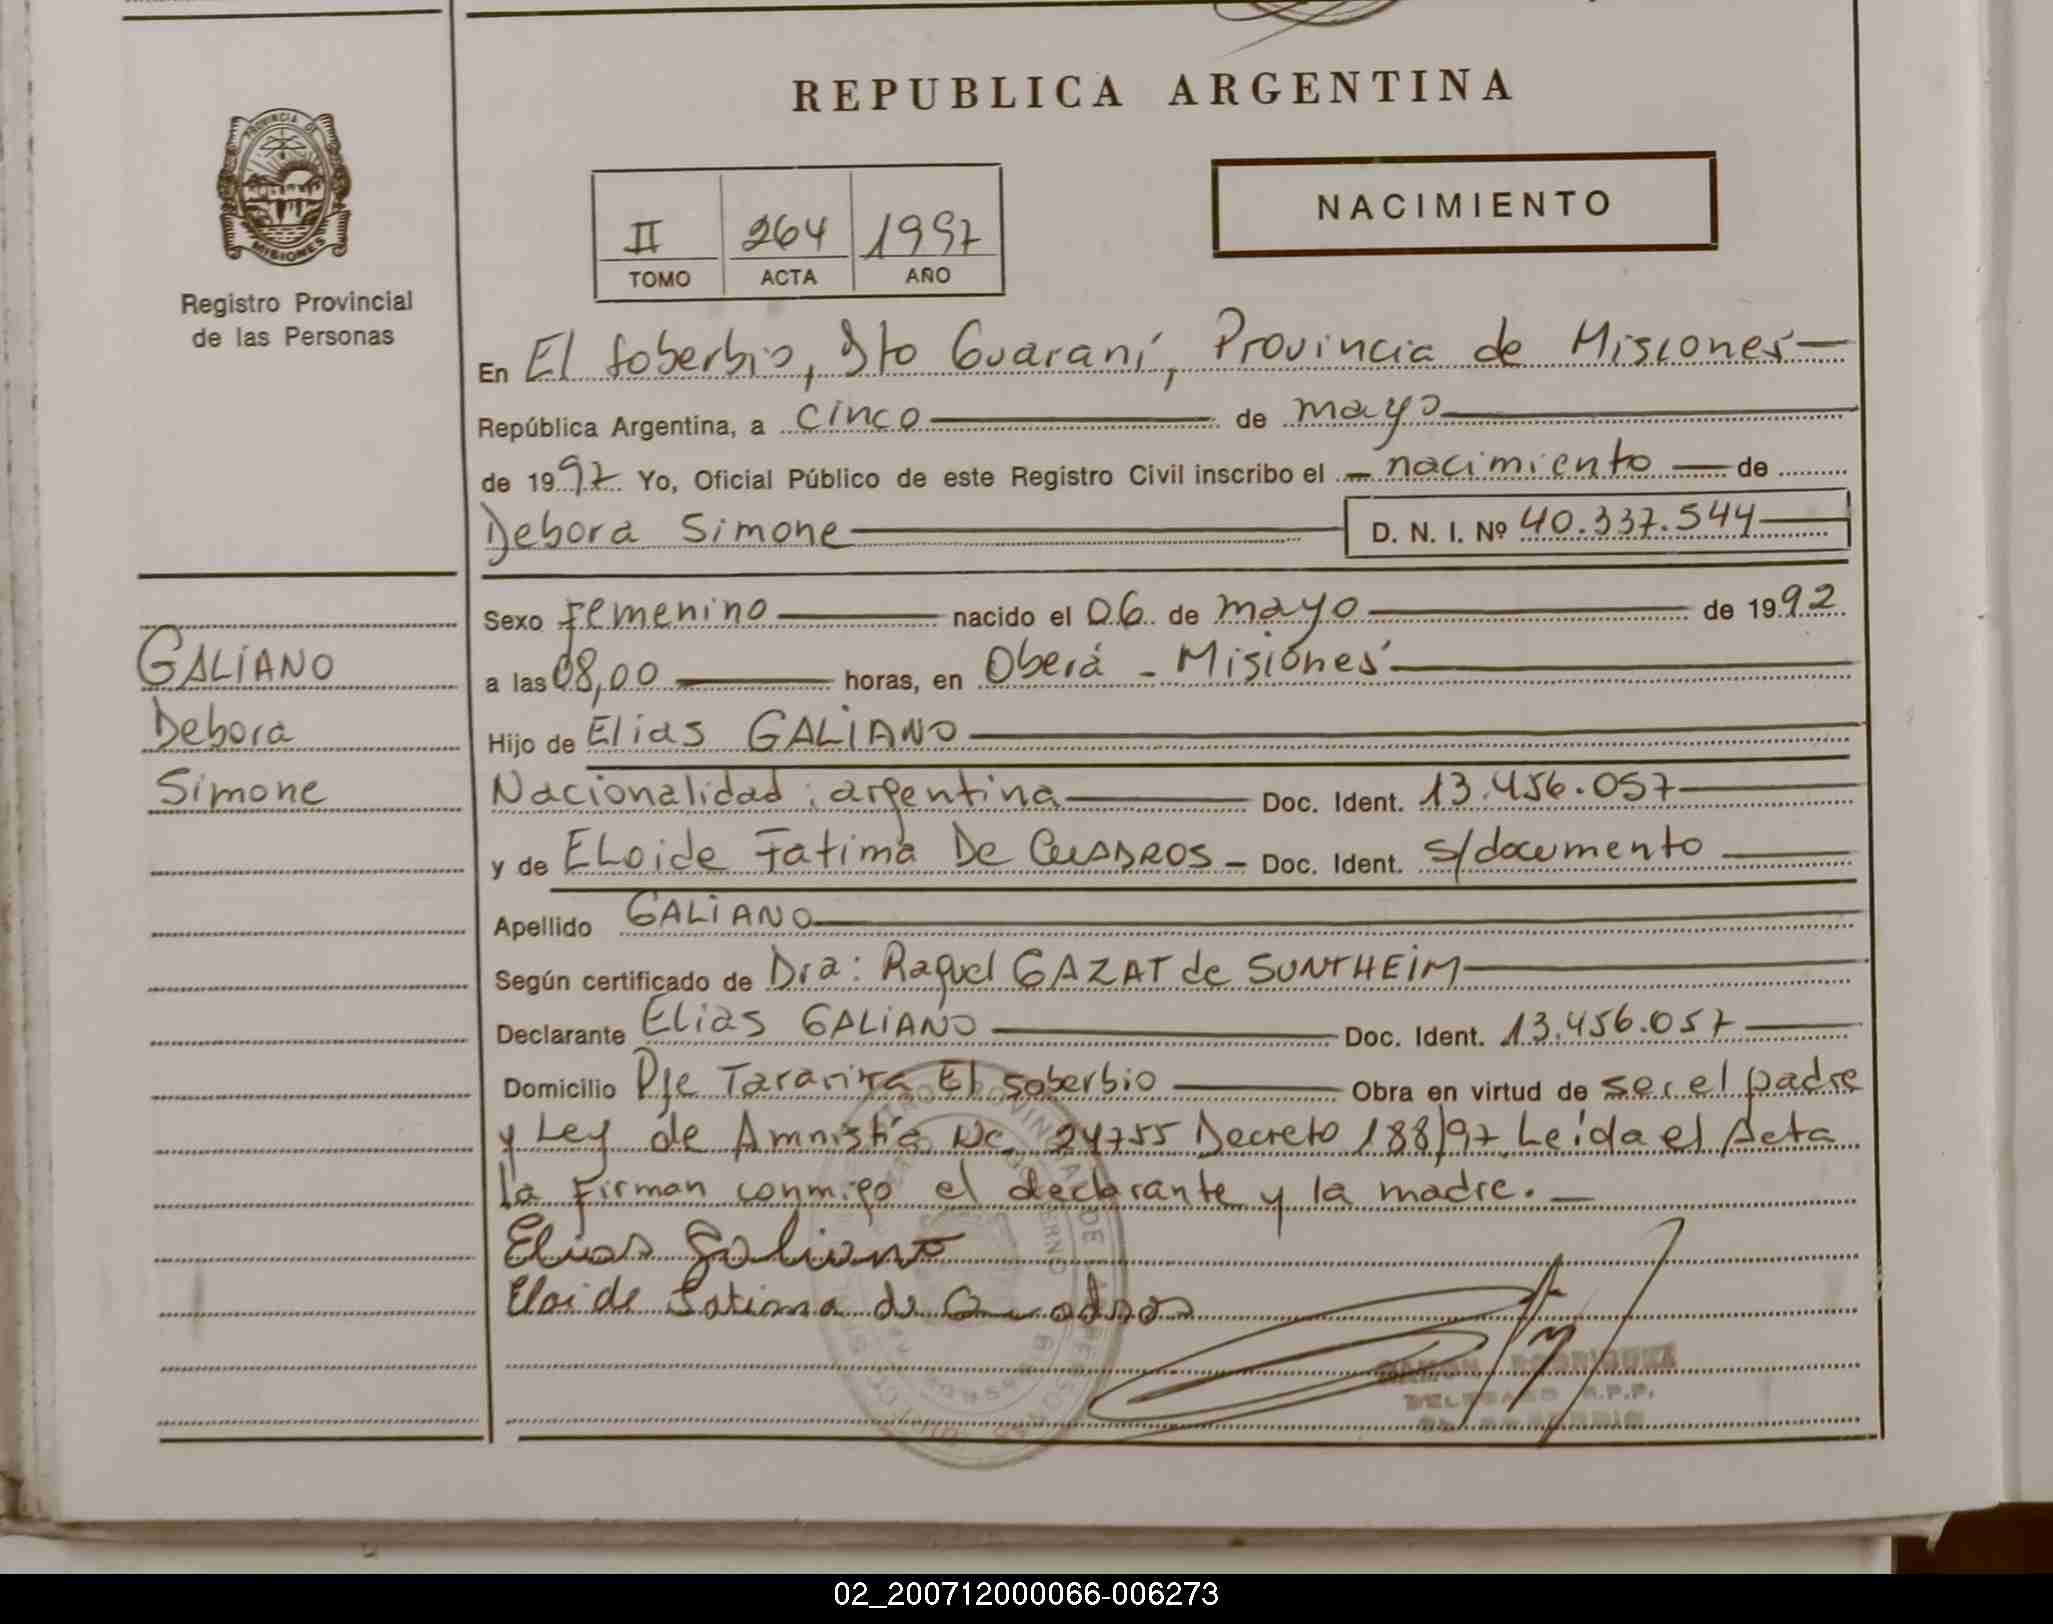 REPUBLICA ARGENTINA
PROVINCIA DE
MISIONES
Registro Provincial
de las Personas
II 264 1997
TOMO ACTA AÑO
NACIMIENTO
En El Soberbio, Dto Guaraní, Provincia de Misiones
República Argentina, a cinco de mayo
de 1997 Yo, Oficial Público de este Registro Civil inscribo el nacimiento de
Debora Simone D. N. I. Nº 40.337.544
GALIANO
Debora
Simone
Sexo Femenino nacido el 06 de mayo de 1992
a las 08,00 horas, en Oberá - Misiones
Hijo de Elias GALIANO
Nacionalidad: argentina Doc. Ident. 13.456.057
y de ELoide Fatima De CUADROS - Doc. Ident. s/documento
Apellido GALIANO
Según certificado de Dra: Raquel GAZAT de SUNTHEIM
Declarante Elias GALIANO Doc. Ident. 13.456.057
Domicilio Pje El Soberbio Obra en virtud de ser el padre
y Ley de Amnistía No 24755 Decreto 188/97 Leída el Acta
la firman conmigo el declarante y la madre.
Elias Galiano
Eloide Fatima de Quadros
RAMON RODRIGUEZ
DELEGADO R.P.P.
EL SOBERBIO
02_200712000066-006273